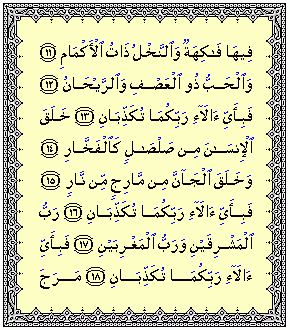 فِيهَا فَـٰكِهَةٌ وَٱلنَّخْلُ ذَاتُ ٱلْأَكْمَامِ ۝١١
وَٱلْحَبُّ ذُو ٱلْعَصْفِ وَٱلرَّيْحَانُ ۝١٢
فَبِأَىِّ ءَالَآءِ رَبِّكُمَا تُكَذِّبَانِ ۝١٣ خَلَقَ
ٱلْإِنسَـٰنَ مِن صَلْصَـٰلٍ كَٱلْفَخَّارِ ۝١٤
وَخَلَقَ ٱلْجَآنَّ مِن مَّارِجٍ مِّن نَّارٍ ۝١٥
فَبِأَىِّ ءَالَآءِ رَبِّكُمَا تُكَذِّبَانِ ۝١٦ رَبُّ
ٱلْمَشْرِقَيْنِ وَرَبُّ ٱلْمَغْرِبَيْنِ ۝١٧ فَبِأَىِّ
ءَالَآءِ رَبِّكُمَا تُكَذِّبَانِ ۝١٨ مَرَجَ